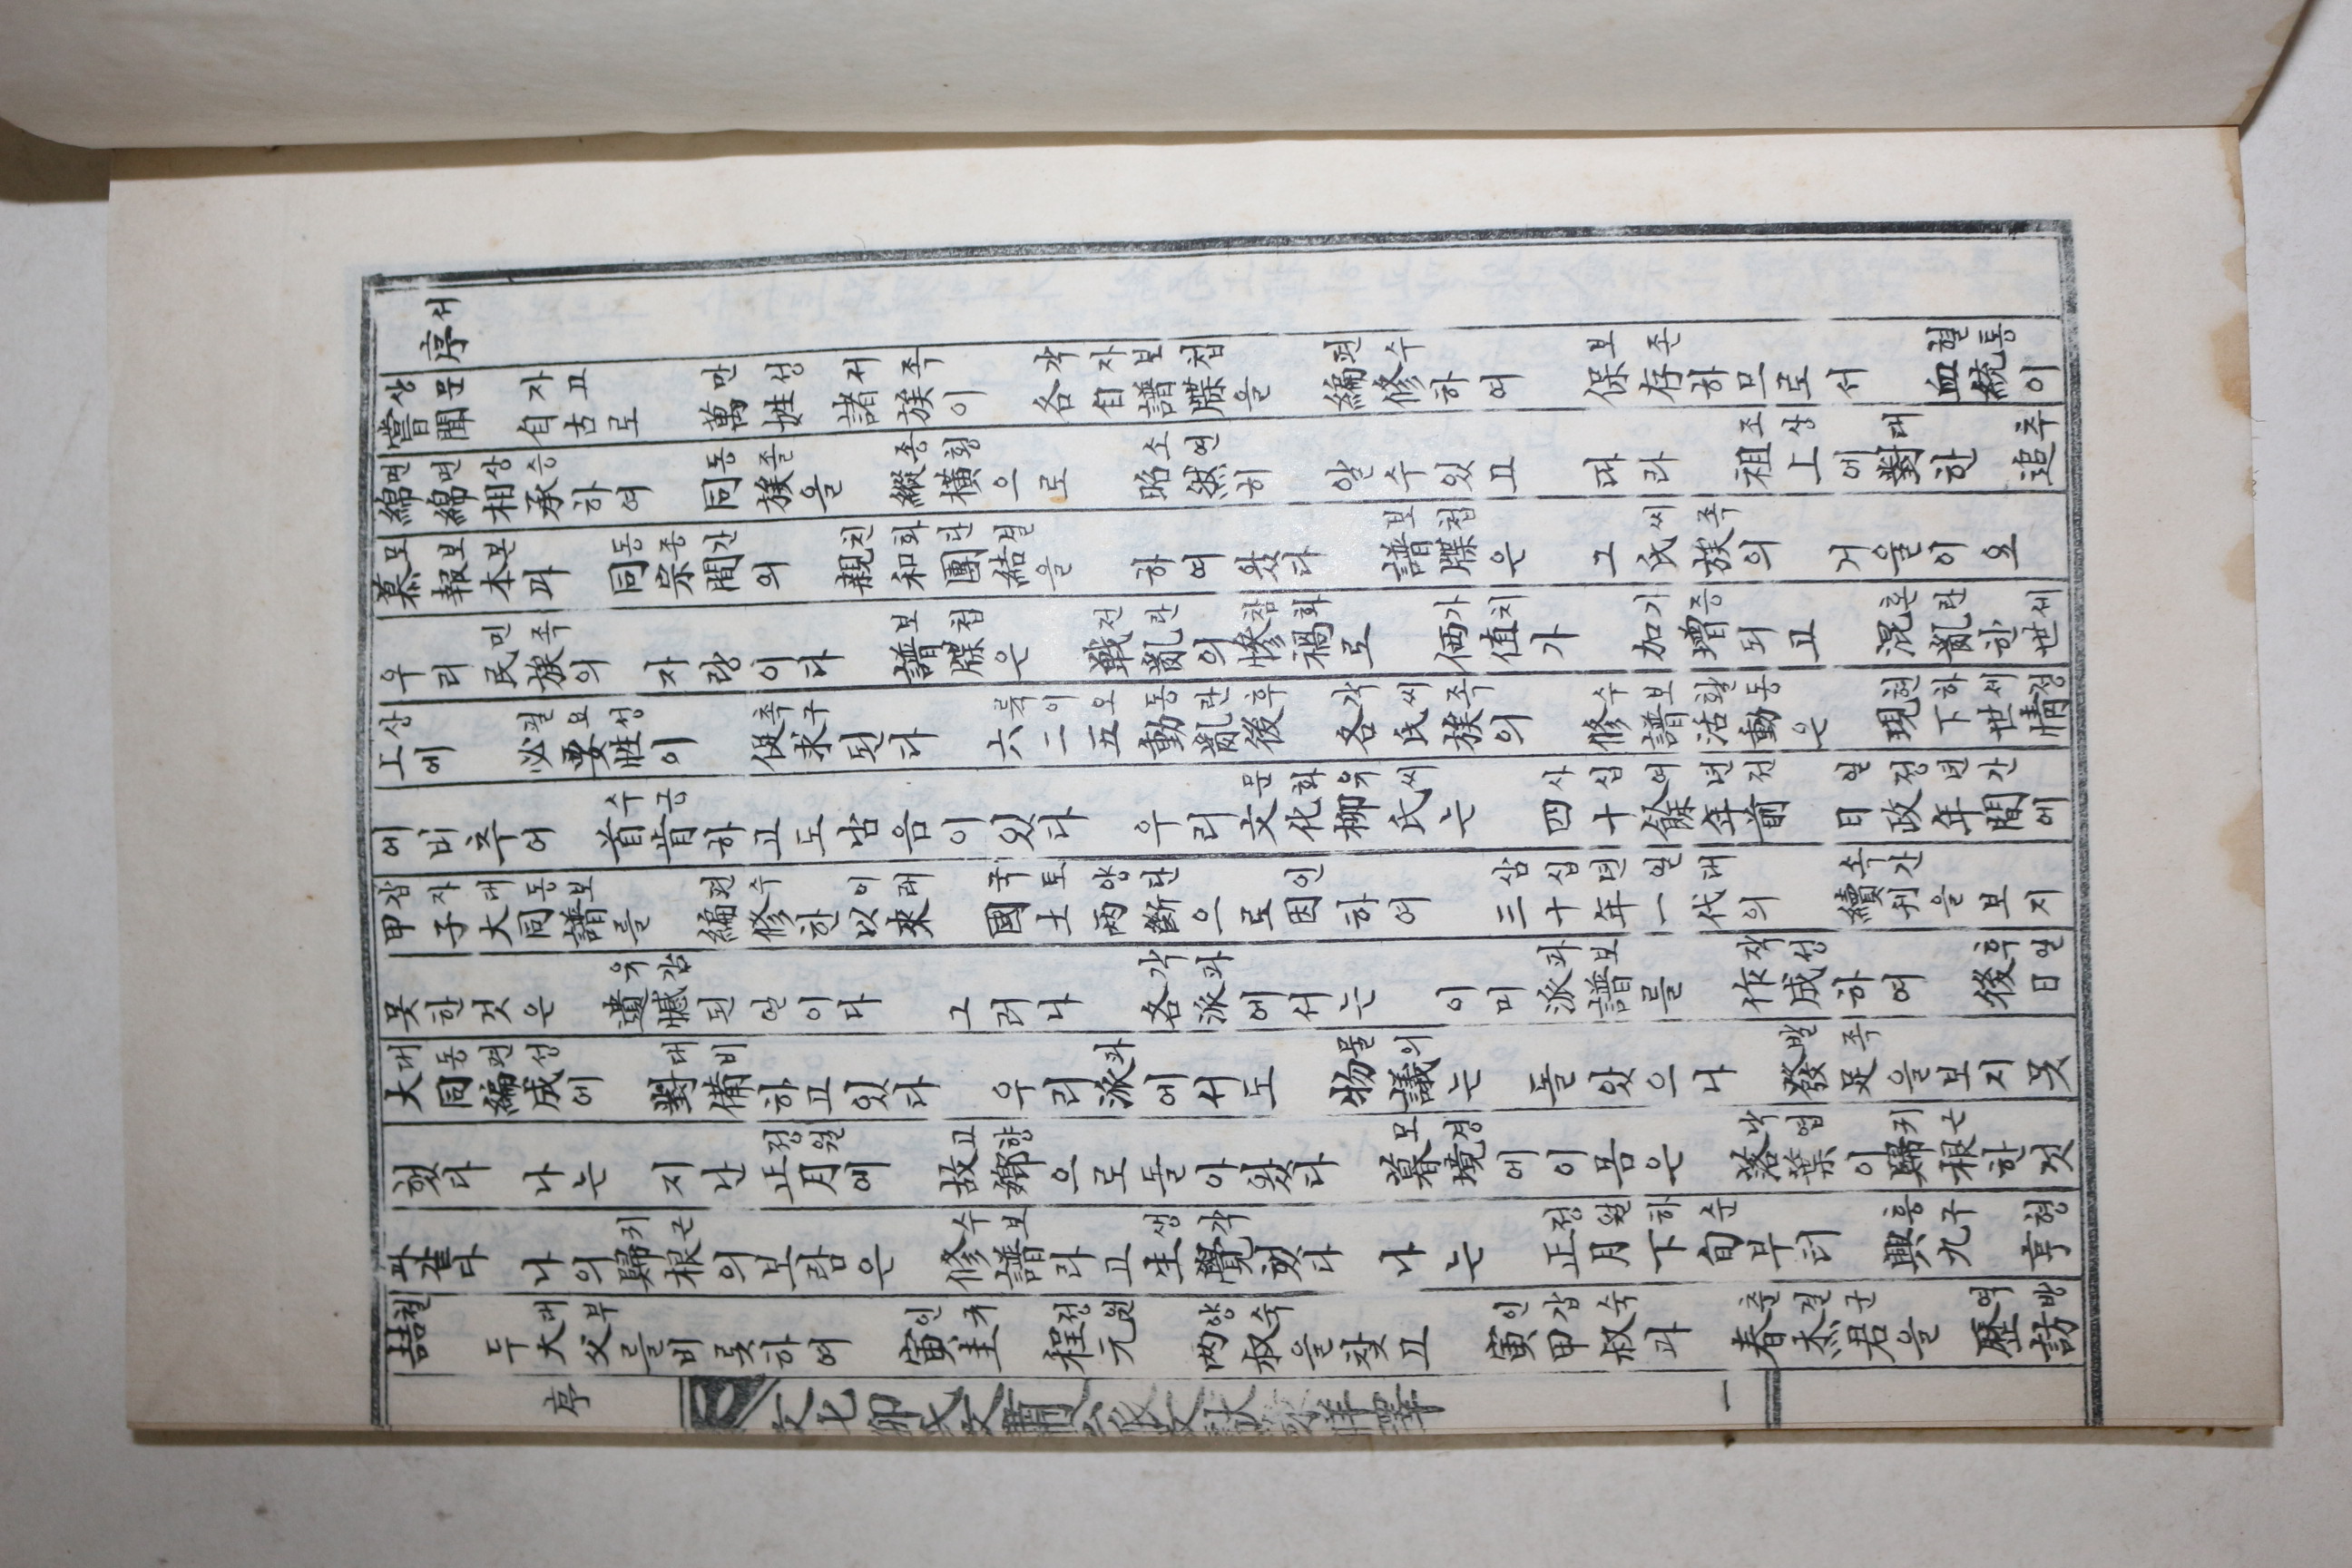 序서
嘗상聞문 自자古고로 萬만姓성 諸저族족이 各각自자譜보牒첩을 編편修수하여 保보存존하므로서 血혈統통이
綿면綿면相상承승하여 同동族졸을 縱종橫횡으로 昭소然연히 알수있고 따라 祖조上상에對대한 追추
慕모報보本본과 同동宗종間간의 親친和화團단結결을 하여왔다 譜보牒첩은 그氏씨族족의 거울이요
우리民민族족의 자랑이다 譜보牒첩은 戦전亂란의慘참禍화로 価가値치가 加기增증되고 混혼亂란한世세
上상에 必필要요性성이 促촉求구된다 六륙二이五오動동亂란後후 各각氏씨族족의 修수譜보活활動동은 現현下하世세情정
에비추어 首수肯긍하고도남음이있다 우리文문化화柳유氏씨는 四사十십餘여年년前전 日일政정年년間간에
甲갑子자大대同동譜보를 編편修수한以이來래 國국土토両양斷단으로因인하여 三삼十십年년一일代대의 續속刊간을보지
못한것은 遺유憾감된일이다 그러나 各각派파에서는 이미派파譜보를 作작成성하여 後후日일
大대同동編편成성에 對대備비하고있다 우리派파에서도 物물議의는 돌았으나 發발足족을보지못
했다 나는 지난正정月월에 故고鄕향으로돌아왔다 暮모境경에이몸은 落낙葉엽이歸귀根근한것
과같다 나의歸귀根근의보람은 修수譜보라고生생覺각했다 나는 正정月월下하旬순부터 興흥九구 亨형
喆철 두大대父부를비롯하여 寅인圭규 程정元원 両양叔숙을찾고 寅인甲갑叔숙과 春춘杰걸君군을 歷역訪방
序 文化柳氏文肅公派文献 譯 一